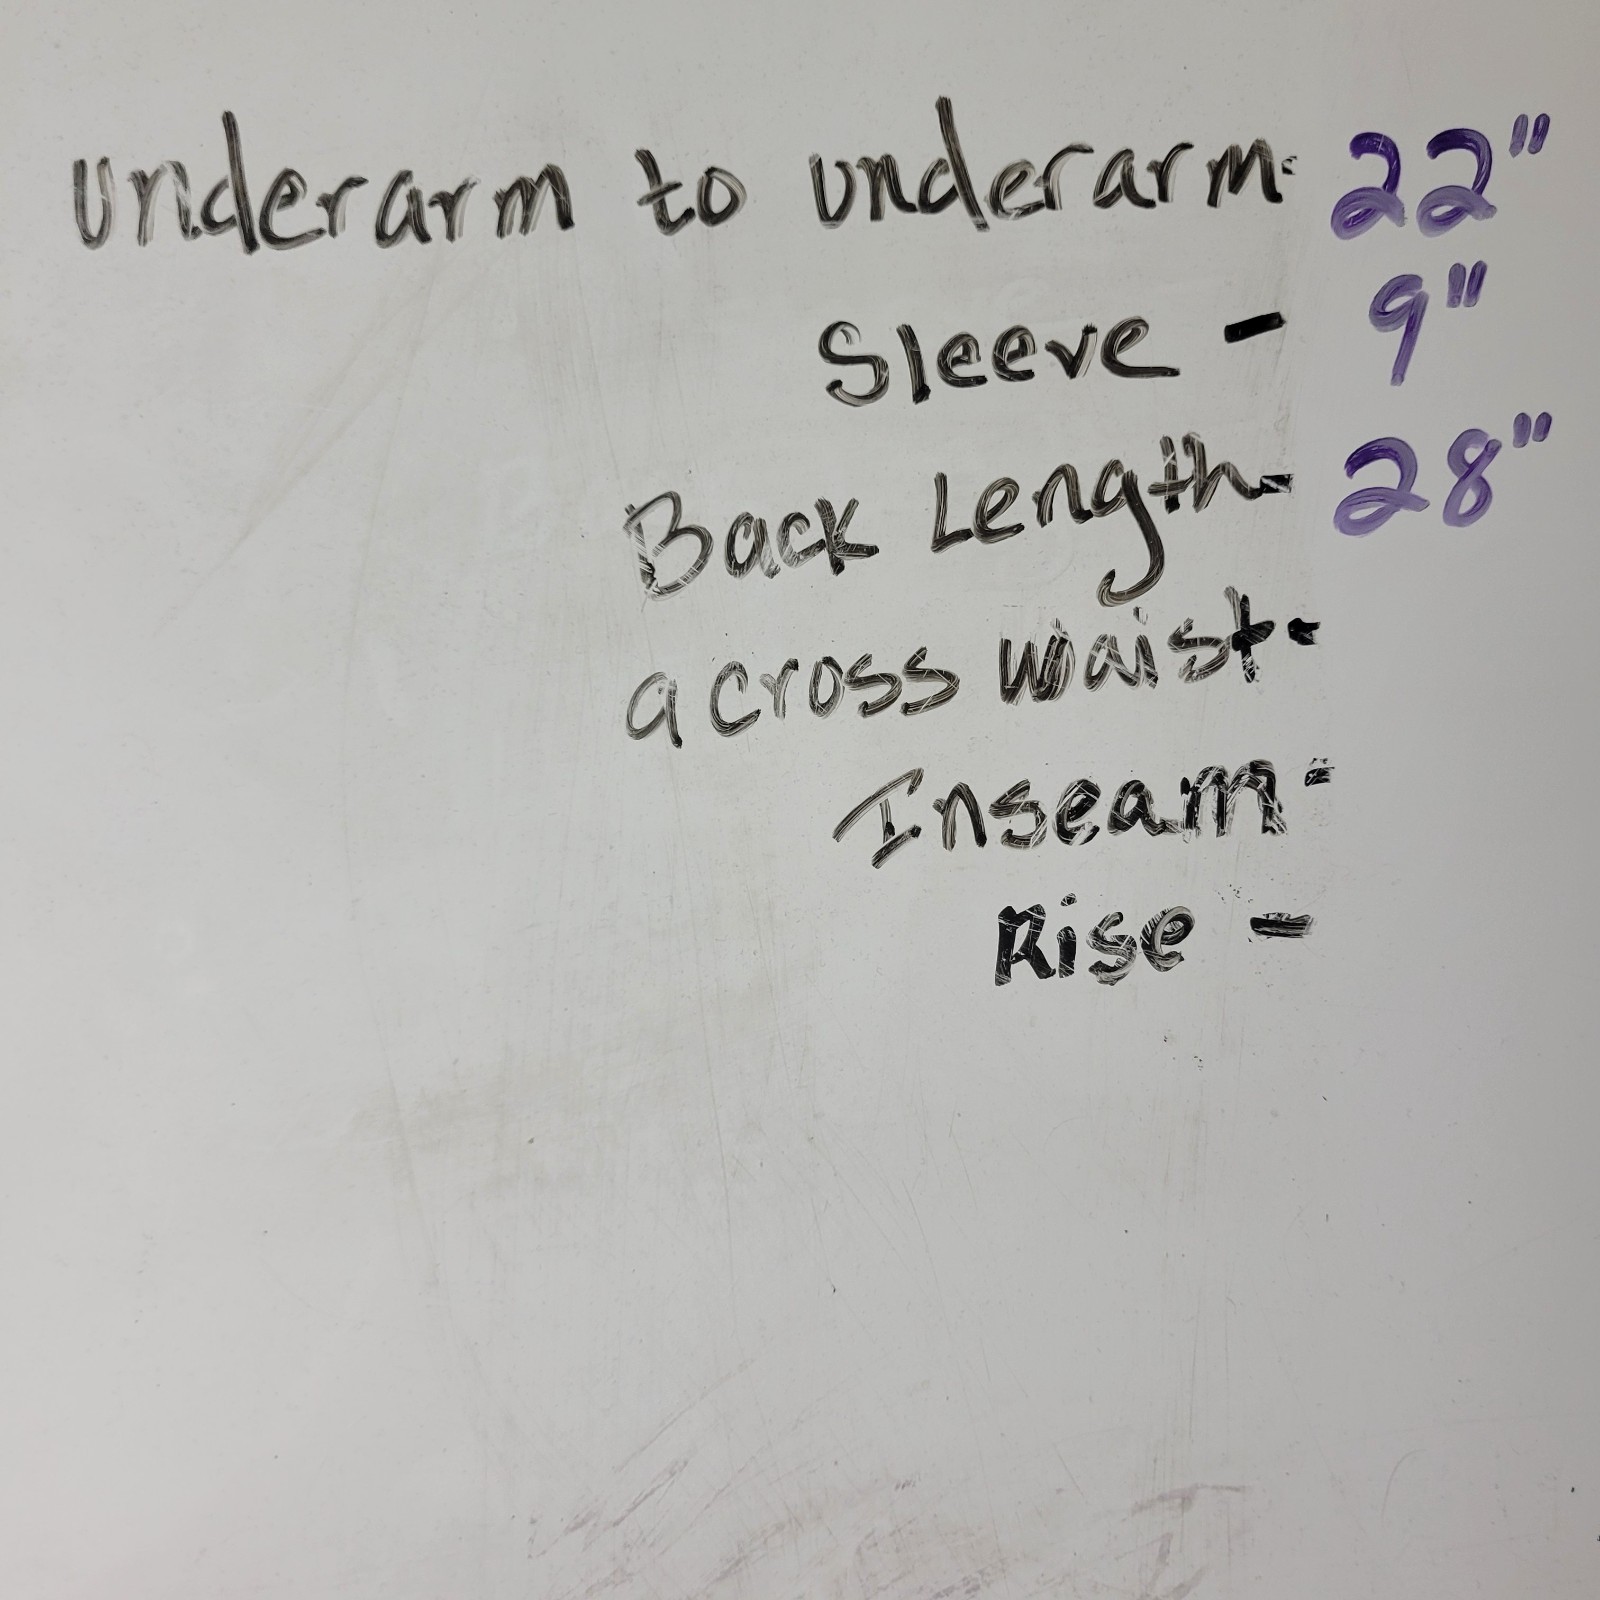 Underarm to underarm- 22"
Sleeve - 9"
Back Length- 28"
across waist-
Inseam-
Rise -